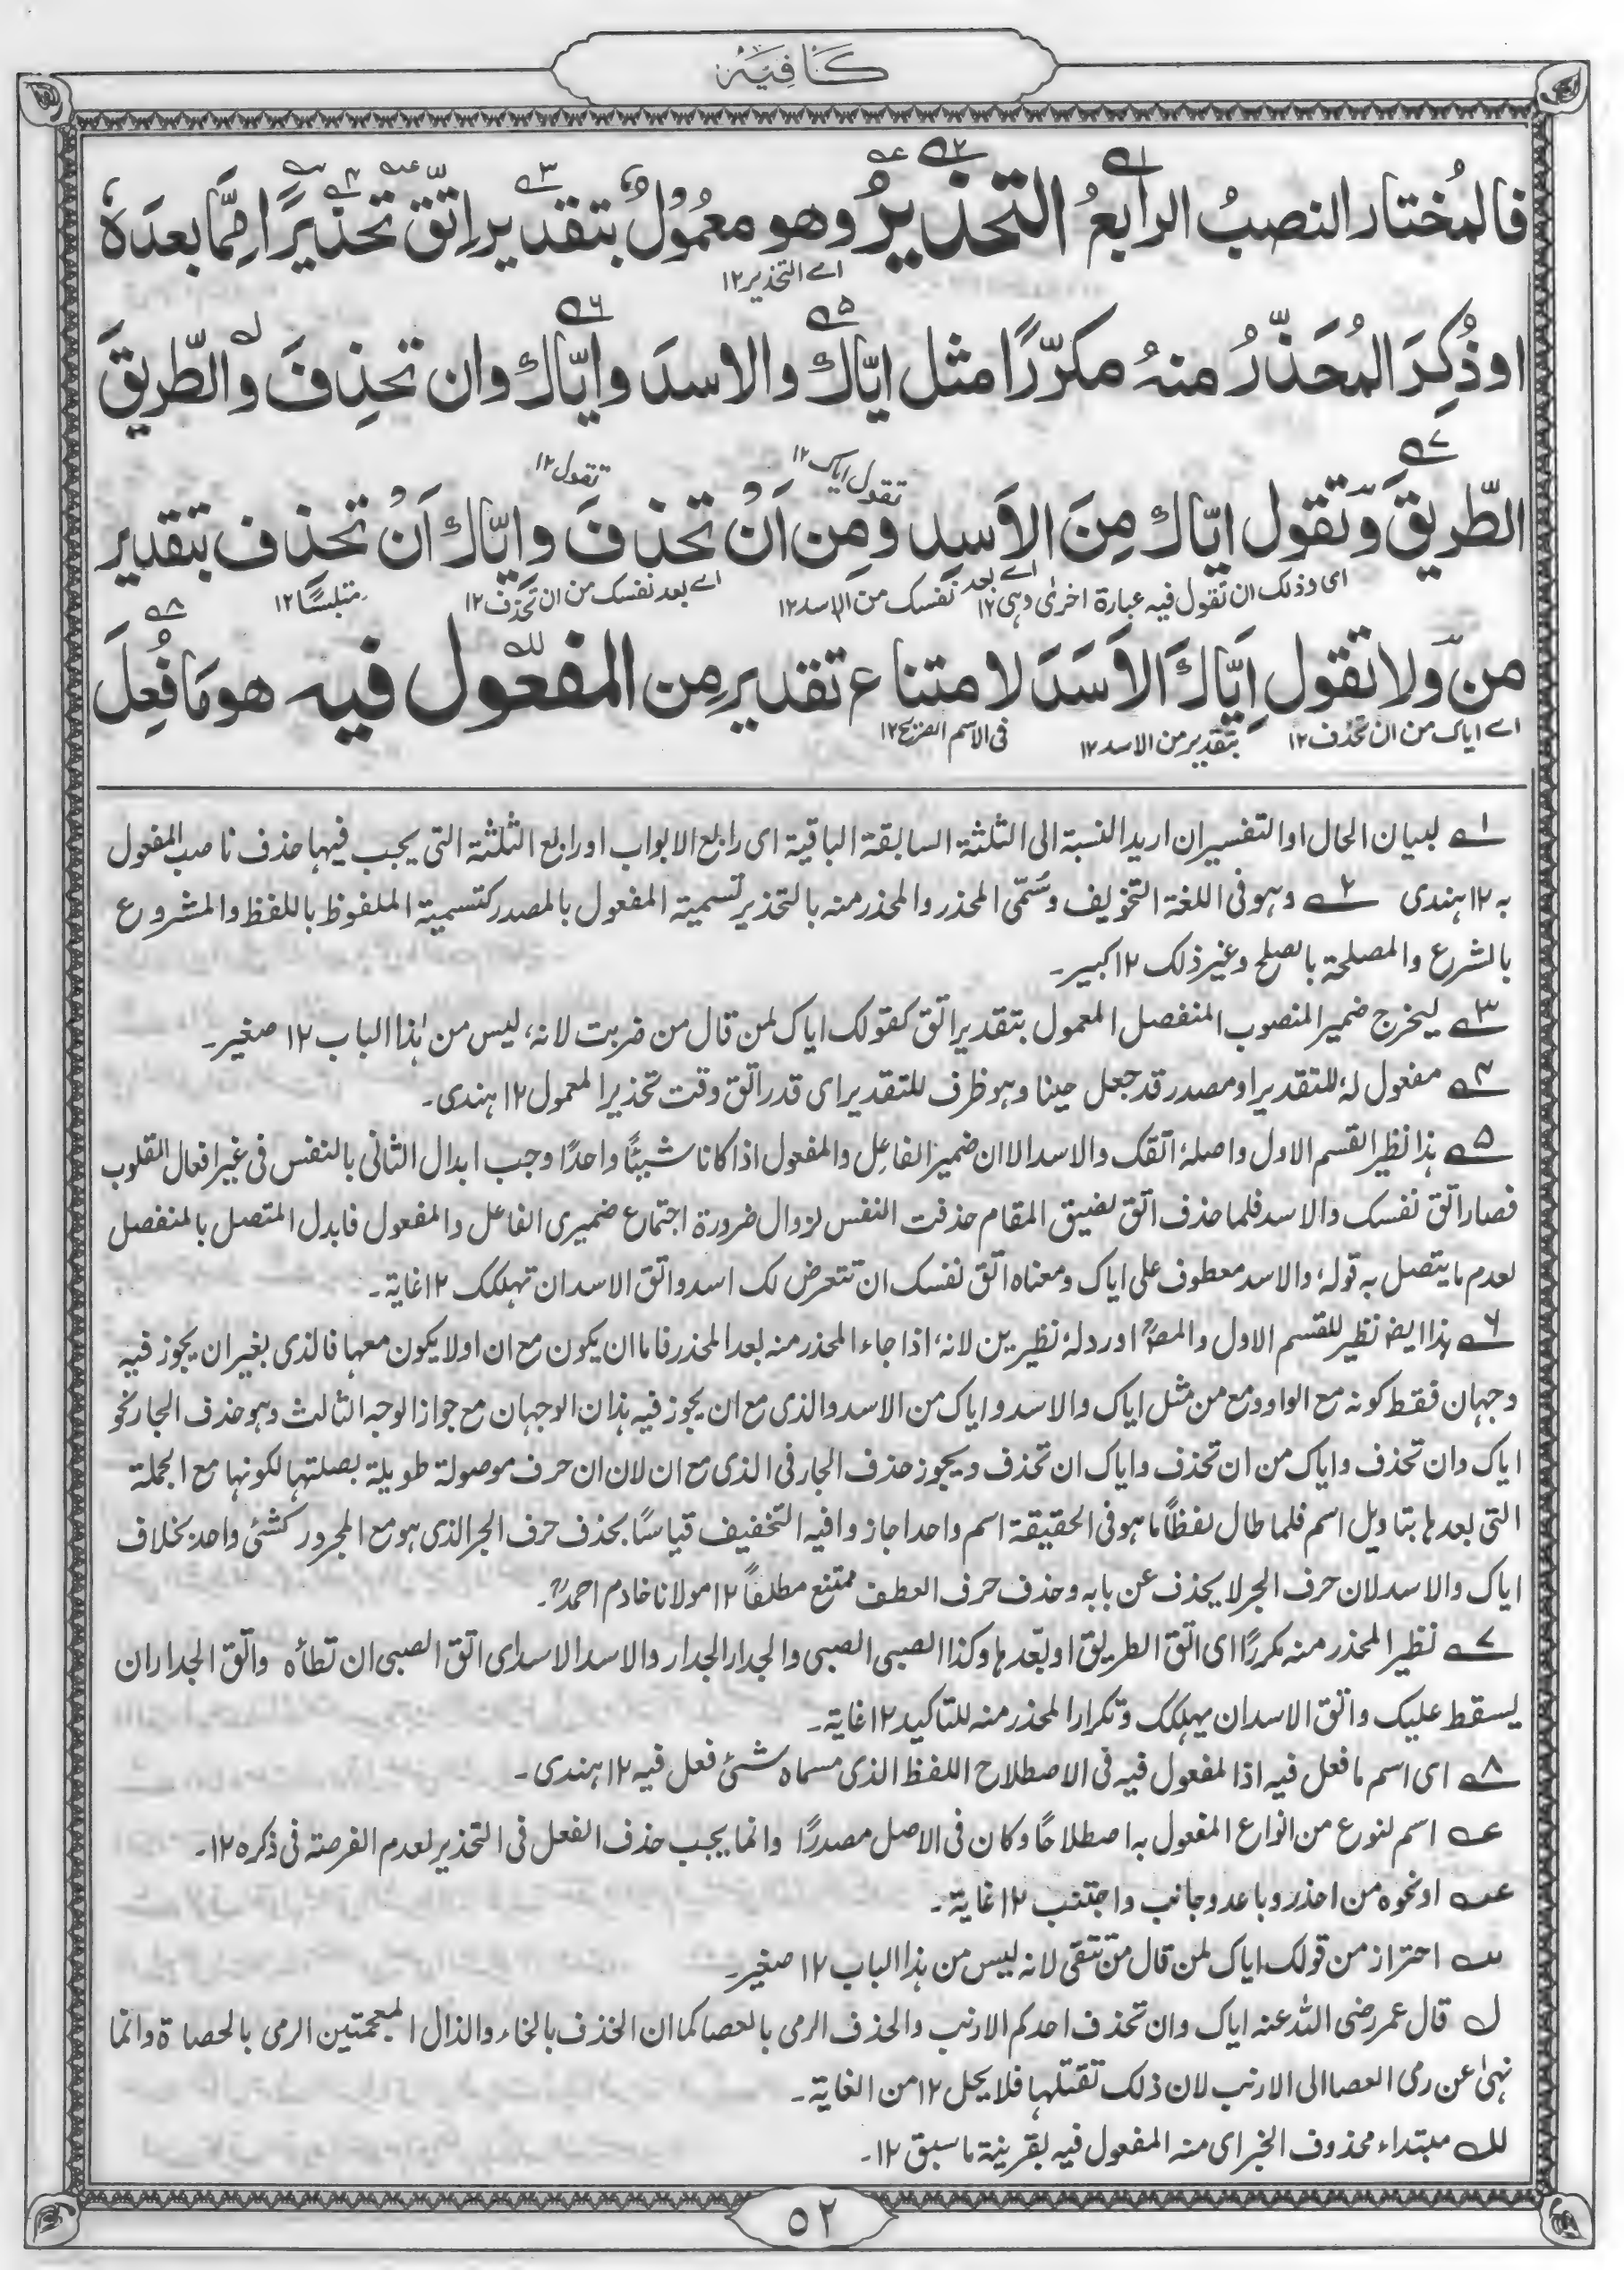 كَافِيَہ
فالمُختار النصبُ الرابعُ التحذيرُ وهو معمُولٌ بتقدير اِتّق تحذيرًا مِمَّا بعدَهٗ
اے التحذیر ۱۲
او ذُكِرَ المُحَذّرُ منهُ مكرّرًا مثل ايّاك والاسدَ وايّاك وان تحذِفَ والطّريقَ
تقول ایاک ۱۲ تقول ۱۲
الطّريقَ وتقول ايّاك مِنَ الاَسدِ ومِن اَنْ تحذفَ وايّاك اَنْ تحذف بتقدير
ای وذلک ان تقول فیہ عبارة اخریٰ وہی ۱۲ اے بعد نفسک من الاسد ۱۲ اے بعد نفسک من ان تحذف ۱۲ متلبسًا ۱۲
من ولا تقول اِيّاكَ الاَسَدَ لامتناع تقدير مِن المفعُول فيه هو مَا فُعِلَ
اے ایاک من ان تحذف ۱۲ بتقدیر من الاسد ۱۲ فی الاسم الصریح ۱۲
۱ لبیان الحال او التفسیر ان ارید النسبة الی الثلثة السابقة الباقیة ای رابع الابواب او رابع الثلثة التی یجب فیہا حذف ناصب المفعول
بہ ۱۲ ہندی ۲ وہو فی اللغة التخویف وسُمّی المحذر والمحذر منہ بالتحذیر تسمیة المفعول بالمصدر کتسمیة الملفوظ باللفظ والمشروع
بالشرع والمصلحة بالصلح وغیر ذلک ۱۲ کبیر۔
۳ لیخرج ضمیر المنصوب المنفصل المعمول بتقدیر اتق کقولک ایاک لمن قال من ضربت لانہٗ لیس من ہٰذا الباب ۱۲ صغیر۔
۴ مفعول لہٗ للتقدیر او مصدر قد جعل حینا وہو ظرف للتقدیر ای قدر اتق وقت تحذیر المعمول ۱۲ ہندی۔
۵ ہذا نظیر القسم الاول واصلہٗ اتقک والاسد الا ان ضمیر الفاعل والمفعول اذا کانا شیئًا واحدًا وجب ابدال الثانی بالنفس فی غیر افعال القلوب
فصار اتق نفسک والاسد فلما حذف اتق لضیق المقام حذفت النفس لزوال ضرورة اجتماع ضمیری الفاعل والمفعول فابدل المتصل بالمنفصل
لعدم ما یتصل بہ قولہٗ والاسد معطوف علی ایاک ومعناہ اتق نفسک ان تتعرض لک اسد واتق الاسد ان تہلکک ۱۲ غایة۔
۶ ہذا ایض نظیر للقسم الاول والمصؒ اورد لہٗ نظیرین لانہٗ اذا جاء المحذر منہ بعد المحذر فاما ان یکون مع ان او لا یکون معہا فالذی بغیر ان یجوز فیہ
وجہان فقط کونہ مع الواو ومع من مثل ایاک والاسد وایاک من الاسد والذی مع ان یجوز فیہ ہذان الوجہان مع جواز الوجہ الثالث وہو حذف الجار نحو
ایاک وان تحذف وایاک من ان تحذف وایاک ان تحذف ویجوز حذف الجار فی الذی مع ان لان ان حرف موصولة طویلة بصلتہا لکونہا مع الجملة
التی بعدہا بتاویل اسم فلما طال لفظاً ما ہو فی الحقیقة اسم واحد اجازوا فیہ التخفیف قیاسًا بحذف حرف الجر الذی ہو مع المجرور کشئی واحد بخلاف
ایاک والاسد لان حرف الجر لا یحذف عن بابہ وحذف حرف العطف ممتنع مطلقاً ۱۲ مولانا خادم احمدؒ۔
۷ نظیر المحذر منہ مکررًا ای اتق الطریق او بعّدہا وکذا الصبی الصبی والجدار الجدار والاسد الاسد ای اتق الصبی ان تطأہ واتق الجدار ان
یسقط علیک واتق الاسد ان یہلکک وتکرار المحذر منہ للتاکید ۱۲ غایة۔
۸ ای اسم ما فعل فیہ اذ المفعول فیہ فی الاصطلاح اللفظ الذی مسماہ شئ فعل فیہ ۱۲ ہندی۔
عہ اسم لنوع من انواع المفعول بہ اصطلاحًا وکان فی الاصل مصدرًا وانما یجب حذف الفعل فی التحذیر لعدم الفرصة فی ذکرہ ۱۲۔
عــہ او نحوہ من احذر وباعد وجانب واجتنب ۱۲ غایة۔
ســہ احتراز من قولک ایاک لمن قال من تتقی لانہ لیس من ہذا الباب ۱۲ صغیر۔
لہ قال عمر رضی اللہ عنہ ایاک وان تحذف احدکم الارنب والحذف الرمی بالعصا کما ان الخذف بالخاء والذال المعجمتین الرمی بالحصاة وانما
نہیٰ عن رمی العصا الی الارنب لان ذلک تقتلہا فلا یحل ۱۲ من الغایة۔
للہ مبتداء محذوف الخبر ای منہ المفعول فیہ بقرینة ما سبق ۱۲۔
۵۲